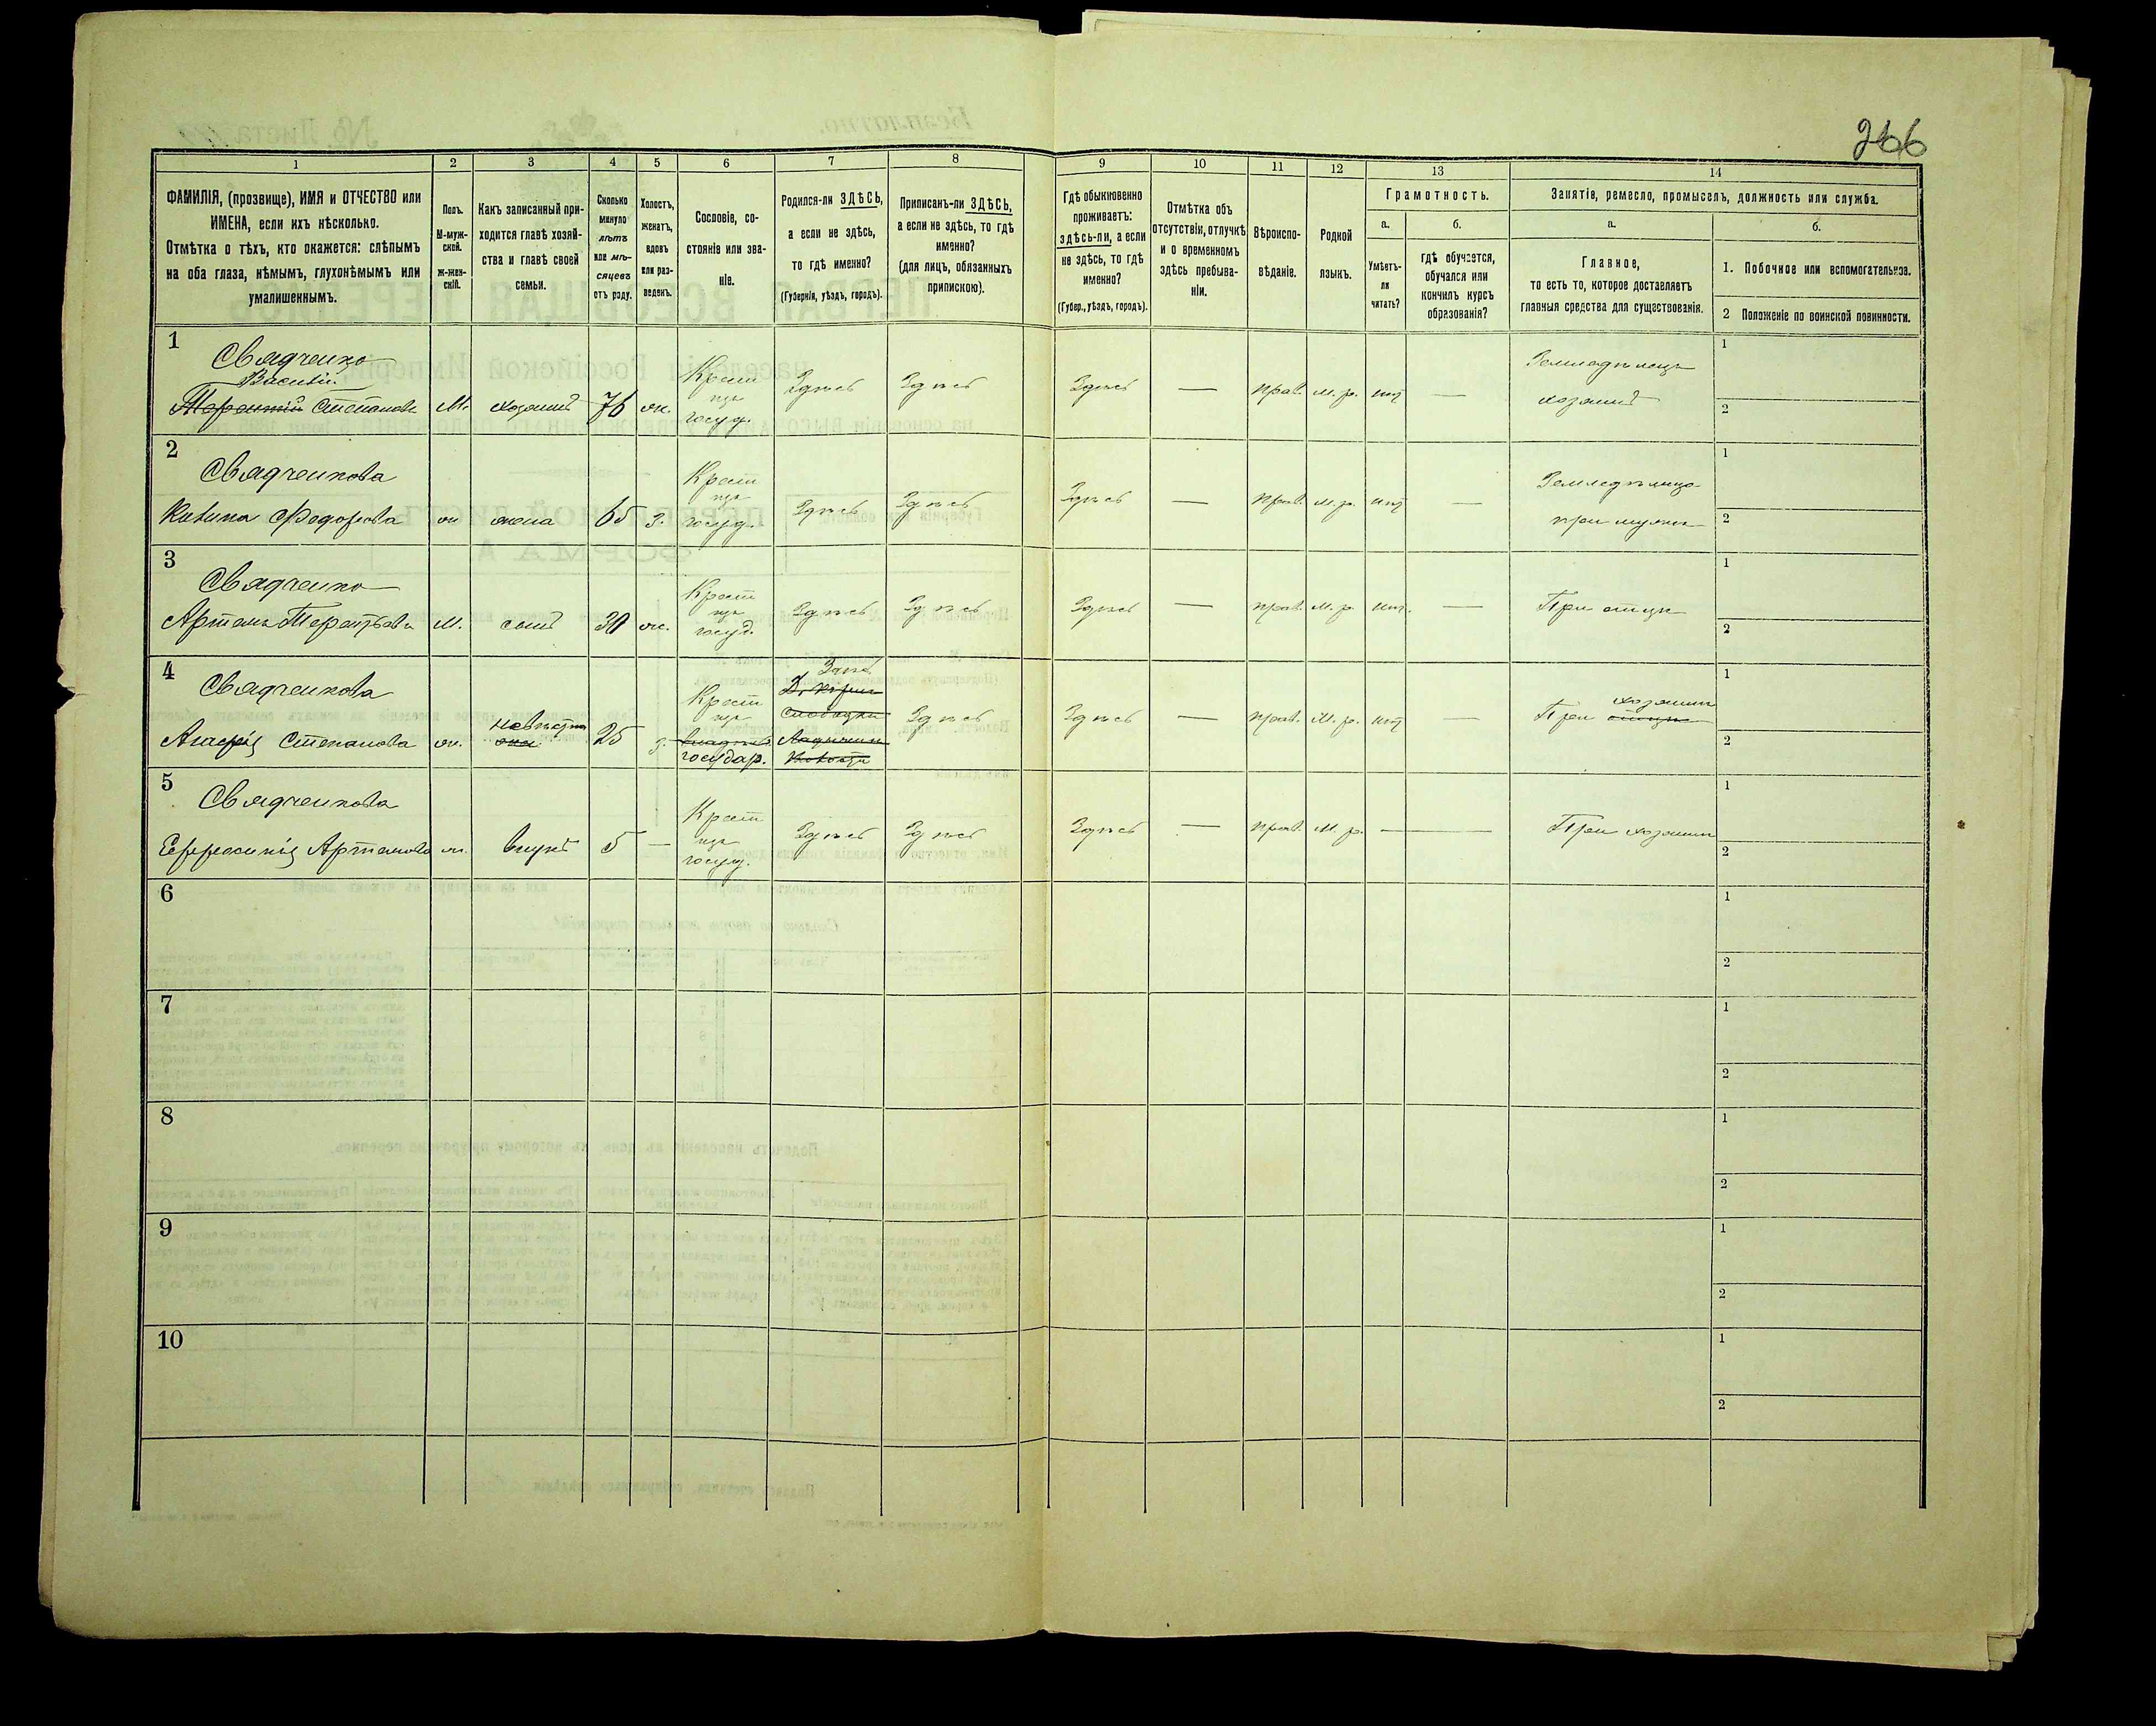 266
1 2 3 4 5 6 7 8 9 10 11 12 13 14
ФАМИЛІЯ, (прозвище), ИМЯ и ОТЧЕСТВО или
ИМЕНА, если ихъ нѣсколько.
Отмѣтка о тѣхъ, кто окажется: слѣпымъ
на оба глаза, нѣмымъ, глухонѣмымъ или
умалишеннымъ.
Полъ.
М-муж-
ской.
Ж-жен-
скій.
Какъ записанный при-
ходится главѣ хозяй-
ства и главѣ своей
семьи.
Сколько
минуло
лѣтъ
или мѣ-
сяцевъ
отъ роду.
Холостъ,
женатъ,
вдовъ
или раз-
веденъ.
Сословіе, со-
стояніе или зва-
ніе.
Родился-ли ЗДѢСЬ,
а если не здѣсь,
то гдѣ именно?
(Губернія, уѣздъ, городъ).
Приписанъ-ли ЗДѢСЬ,
а если не здѣсь, то гдѣ
именно?
(для лицъ, обязанныхъ
припискою).
Гдѣ обыкновенно
проживаетъ:
здѣсь-ли, а если
не здѣсь, то гдѣ
именно?
(Губер., уѣздъ, городъ).
Отмѣтка объ
отсутствіи, отлучкѣ
и о временномъ
здѣсь пребыва-
ніи.
Вѣроиспо-
вѣданіе.
Родной
языкъ.
Грамотность.
а.
Умѣетъ-
ли
читать?
б.
гдѣ обучается,
обучался или
кончилъ курсъ
образованія?
Занятіе, ремесло, промыселъ, должность или служба.
а.
Главное,
то есть то, которое доставляетъ
главныя средства для существованія.
б.
1. Побочное или вспомогательное.
2 Положеніе по воинской повинности.
1
Свядченко
Василій
Терентій Степановъ
М. хозяинъ 76 ж.
Крест
нзъ
госуд.
Здѣсь Здѣсь Здѣсь — прав. м. р. нѣт —
Земледѣлецъ
хозяинъ
1
2
2
Свядченкова
Федорова
ж жена 65 з.
Крест
нзъ
госуд.
Здѣсь Здѣсь Здѣсь — прав. м. р. нѣт —
Земледѣлица
при мужѣ
1
2
3
Свядченко
Артемъ Терентьевъ
М. сынъ 30 ж.
Крест
нзъ
госуд.
Здѣсь Здѣсь Здѣсь — прав. М. р. нѣт. —
При отцѣ
1
2
4
Свядченкова
Агафія Степанова
ж. невѣстка 25 з.
Крест
нзъ
государ.
Здѣсь
Здѣсь Здѣсь — прав. М. р. нѣт —
При хозяинѣ
отцѣ
1
2
5
Свядченкова
Ефросинія Артемова
ж. внука 5 —
Крест
нзъ
госуд.
Здѣсь Здѣсь Здѣсь — прав. М. р. — —
При хозяинѣ
1
2
6
1
2
7
1
2
8
1
2
9
1
2
10
1
2